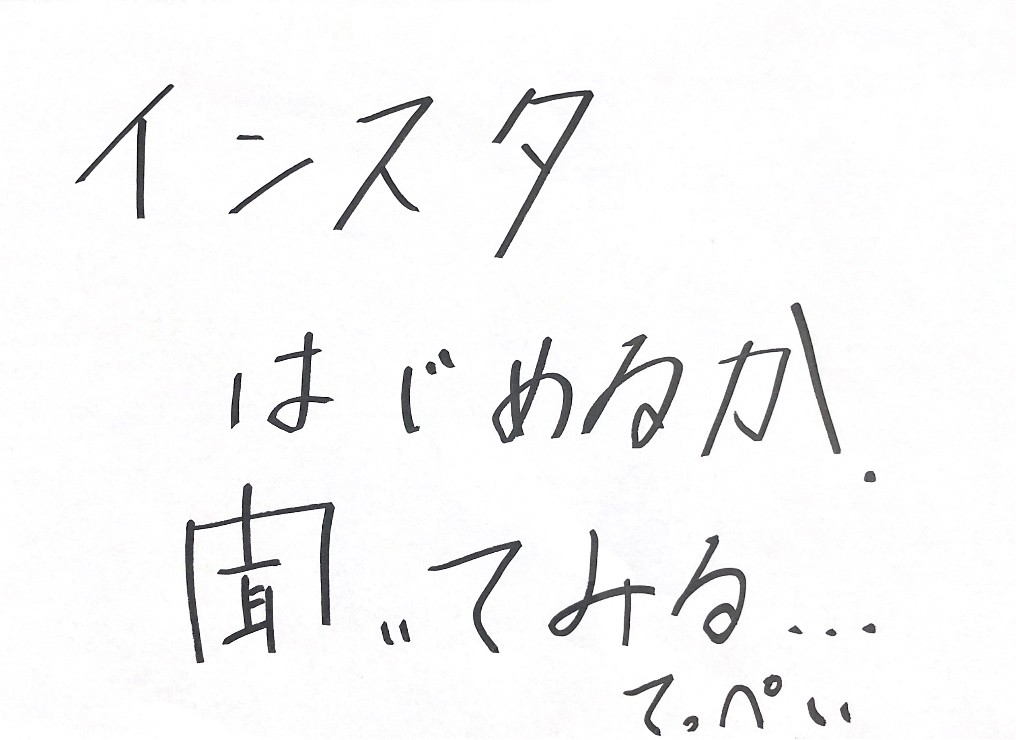 インスタ
はじめるか.
聞いてみる...
てっぺい